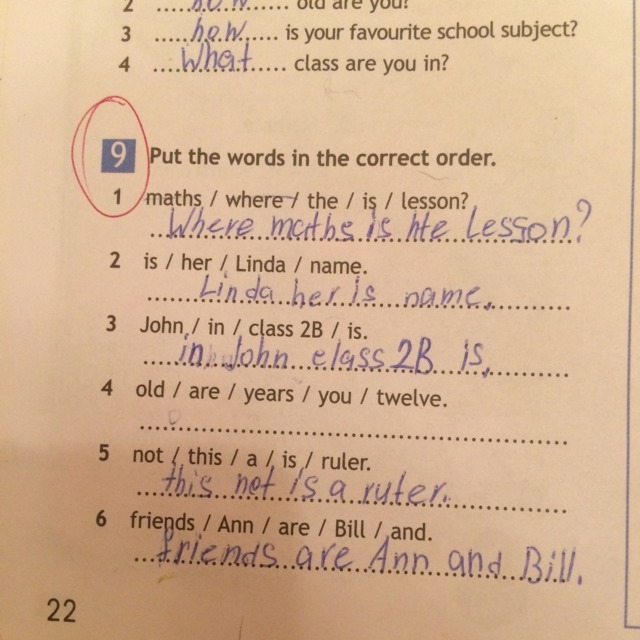 2 ....how...... old are you?
3 ....how..... is your favourite school subject?
4 ....What..... class are you in?
9 Put the words in the correct order.
1 maths / where / the / is / lesson?
Where maths is hte Lesson?
2 is / her / Linda / name.
Linda her is name.
3 John / in / class 2B / is.
in John class 2B is.
4 old / are / years / you / twelve.
5 not / this / a / is / ruler.
this not is a ruter.
6 friends / Ann / are / Bill / and.
friends are Ann and Bill.
22